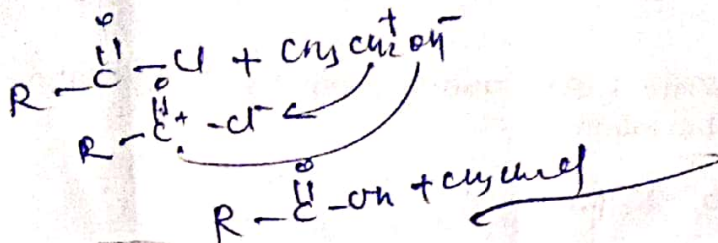 O
R - C - Cl + CH3 CH2+ OH-
O
R - C+ - Cl-
O
R - C - OH + CH3CH2Cl